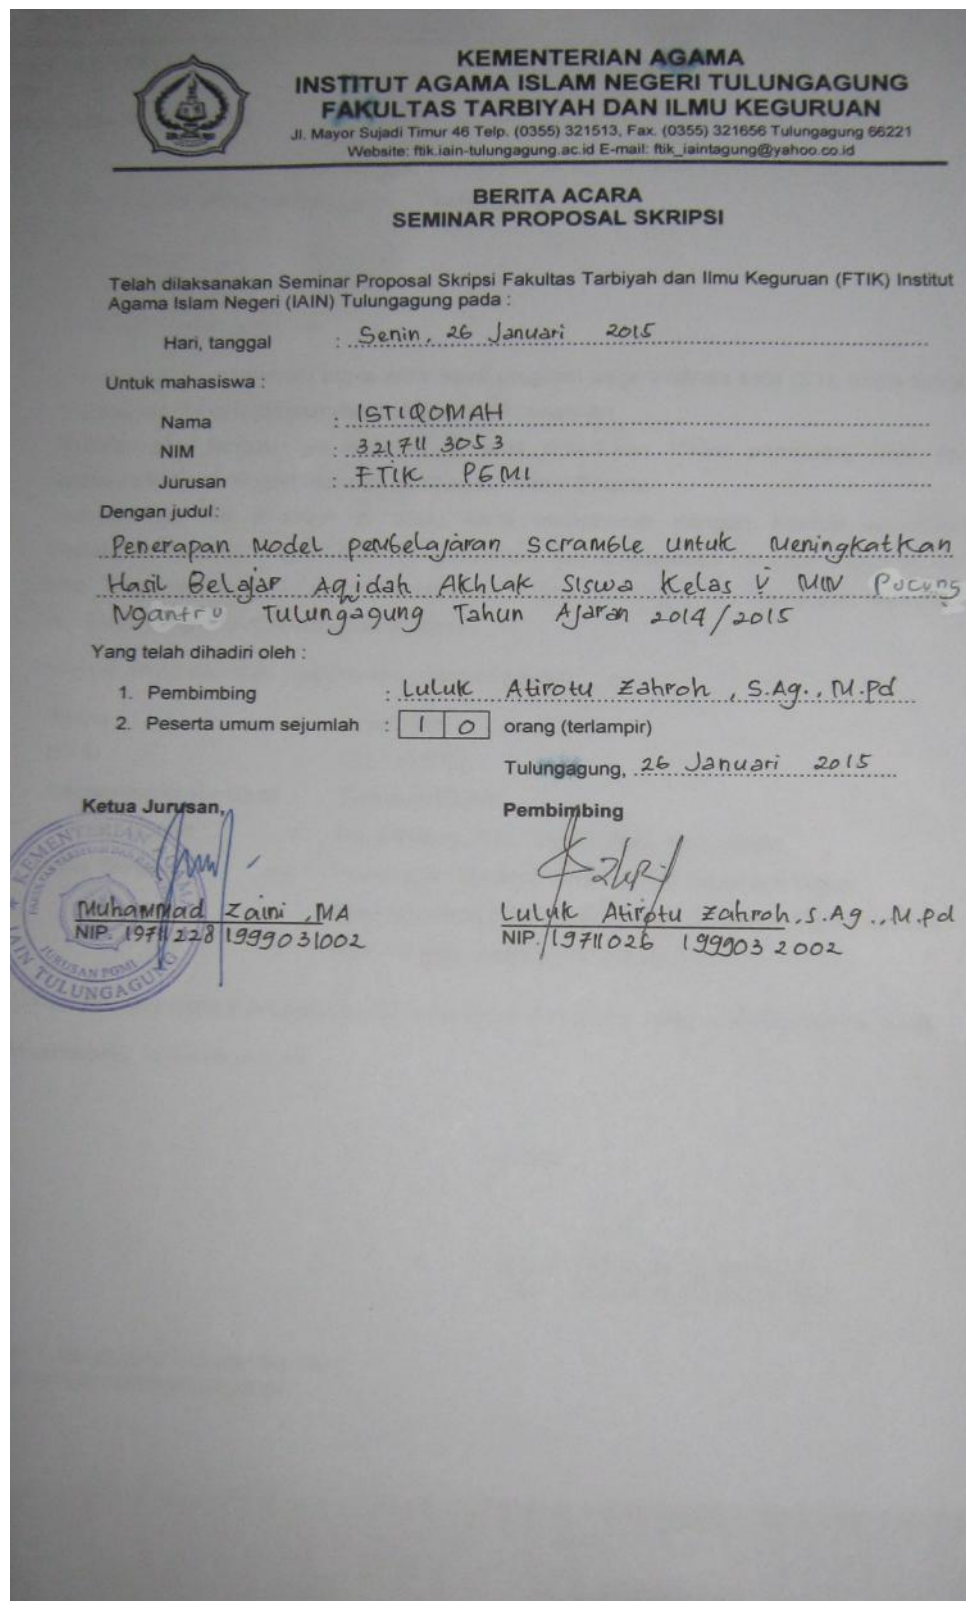 KEMENTERIAN AGAMA
INSTITUT AGAMA ISLAM NEGERI TULUNGAGUNG
FAKULTAS TARBIYAH DAN ILMU KEGURUAN
Jl. Mayor Sujadi Timur 46 Telp. (0355) 321513, Fax. (0355) 321656 Tulungagung 66221
Website: ftik.iain-tulungagung.ac.id E-mail: ftik_iaintagung@yahoo.co.id
BERITA ACARA
SEMINAR PROPOSAL SKRIPSI
Telah dilaksanakan Seminar Proposal Skripsi Fakultas Tarbiyah dan Ilmu Keguruan (FTIK) Institut
Agama Islam Negeri (IAIN) Tulungagung pada :
Hari, tanggal : Senin, 26 Januari 2015
Untuk mahasiswa :
Nama : ISTIQOMAH
NIM : 321711 3053
Jurusan : FTIK PGMI
Dengan judul:
Penerapan Model pembelajaran Scramble Untuk Meningkatkan
Hasil Belajar Aqidah Akhlak Siswa Kelas V MIN Pucung
Ngantru Tulungagung Tahun Ajaran 2014/2015
Yang telah dihadiri oleh :
1. Pembimbing : Luluk Atirotu Zahroh, S.Ag., M.Pd
2. Peserta umum sejumlah : 10 orang (terlampir)
Tulungagung, 26 Januari 2015
Ketua Jurusan, Pembimbing
KEMENTERIAN AGAMA
JURUSAN PGMI
IAIN TULUNGAGUNG
Muhammad Zaini, MA Luluk Atirotu Zahroh, S.Ag., M.pd
NIP. 19711228 1999031002 NIP. 19711026 199903 2002